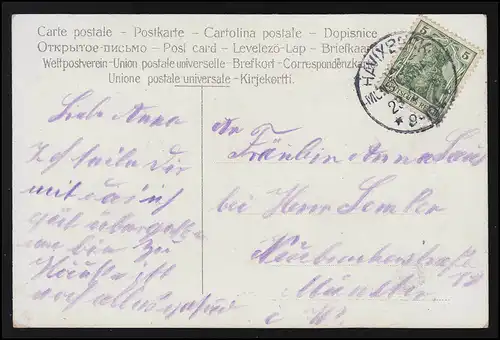 Carte postale - Postkarte - Cartolina postale - Dopisnice
Открытое письмо - Post card - Levelező-Lap - Briefkaart
Weltpostverein - Union postale universelle - Brefkort - Correspondenzkarte
Unione postale universale - Kirjekortti.
5 5
HAVIXBECK
Liebe Anna
Ich teile dir
mit das ich
gut
bin zu
Hause ist
noch alles
An
Fräulein Anna
bei Herr Semler
Münster
i. W.